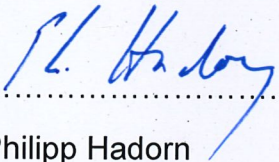 Ph. Hadorn
Philipp Hadorn